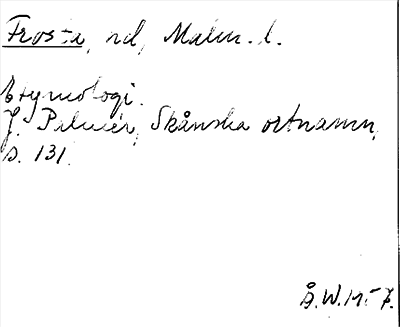 Frosta, hd, Malm. l.
Etymologi.
J. Palmér, Skånska ortnamn,
s. 131.
Å.W.M-7.